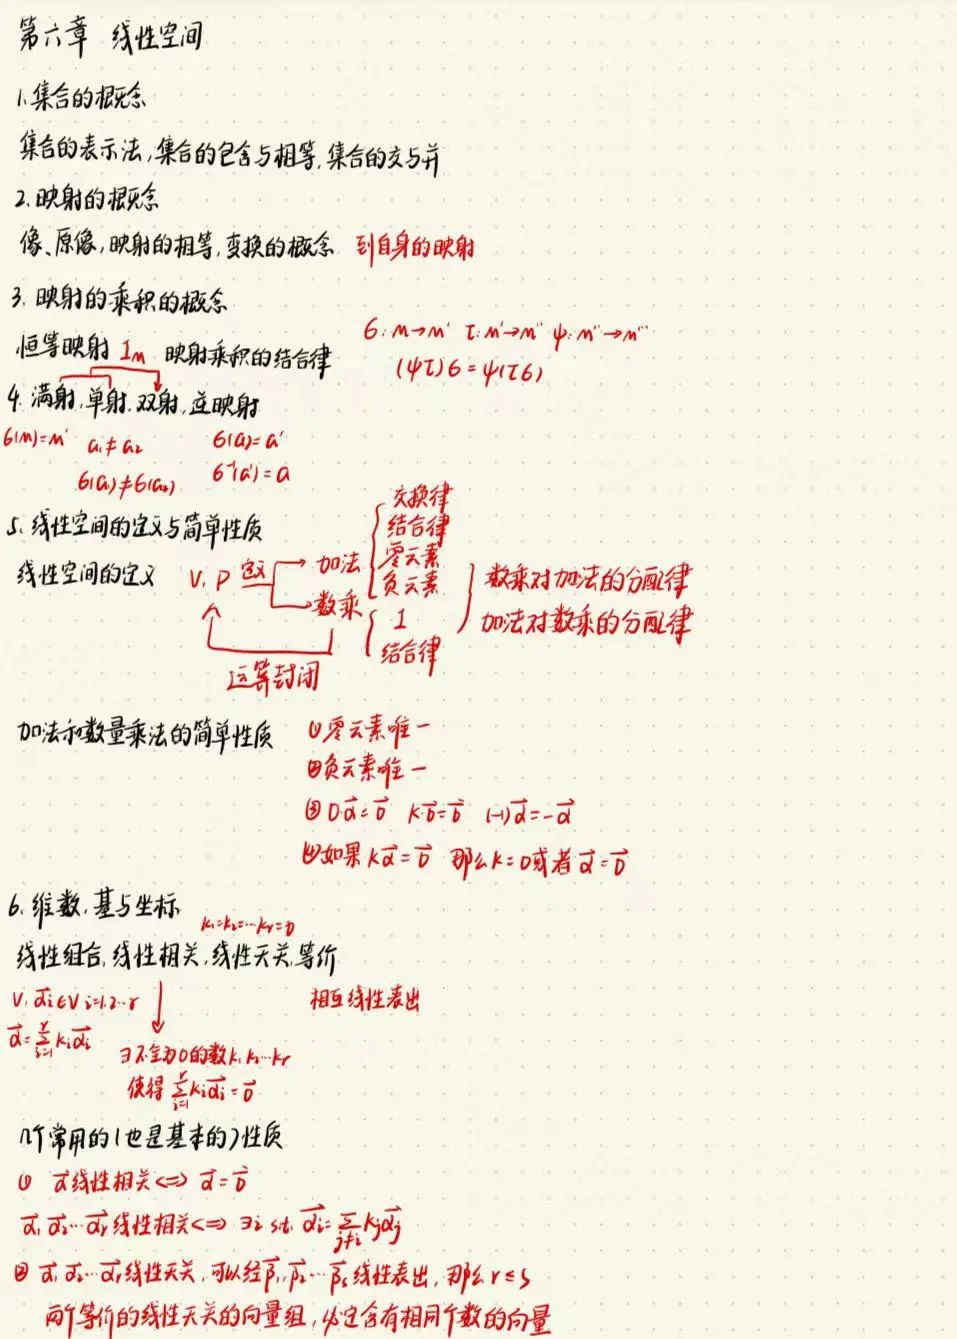 第六章 线性空间
1.集合的概念
集合的表示法,集合的包含与相等,集合的交与并
2.映射的概念
像、原像,映射的相等,变换的概念 到自身的映射
3.映射的乘积的概念
σ:M→M' τ:M'→M'' ψ:M''→M'''
恒等映射 I_M 映射乘积的结合律
(ψτ)σ=ψ(τσ)
4.满射,单射,双射,逆映射
σ(M)=M' a₁≠a₂ σ(a)=a'
σ(a₁)≠σ(a₂) σ⁻¹(a')=a
5.线性空间的定义与简单性质
线性空间的定义 V,P 定义 加法 数乘
交换律
结合律
零元素
负元素
1
结合律
数乘对加法的分配律
加法对数乘的分配律
运算封闭
加法和数量乘法的简单性质 ①零元素唯一
②负元素唯一
③0·α⃗=0⃗ k·0⃗=0⃗ (-1)α⃗=-α⃗
④如果kα⃗=0⃗ 那么k=0或者α⃗=0⃗
6.维数,基与坐标
k₁=k₂=…kᵣ=0
线性组合,线性相关,线性无关,等价
V,α⃗ᵢ∈V i=1,2…r 相互线性表出
α⃗=∑ᵢ₌₁ʳkᵢα⃗ᵢ
∃不全为0的数k₁k₂…kᵣ
使得∑ᵢ₌₁ʳkᵢα⃗ᵢ=0⃗
几个常用的(也是基本的)性质
① α⃗线性相关<=>α⃗=0⃗
α⃗₁α⃗₂…α⃗ᵣ线性相关<=>∃i s.t. α⃗ᵢ=∑j≠i kⱼα⃗ⱼ
② α⃗₁α⃗₂…α⃗ᵣ线性无关,可以经β⃗₁,β⃗₂…β⃗ₛ线性表出,那么r≤s
两个等价的线性无关的向量组,必定含有相同个数的向量